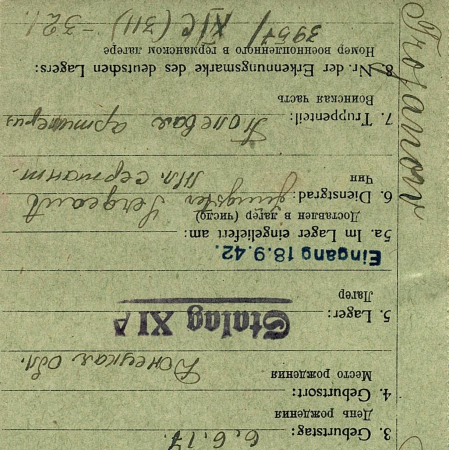 Trojanow
3. Geburtstag: 6.6.17.
День рождения
4. Geburtsort:
Место рождения Донецкая Обл.
5. Lager: Stalag XI A
Лагер
Eingang 18.9.42.
5a. Im Lager eingeliefert am:
Доставлен в лагер (число)
6. Dienstgrad: Jüngster Sergeant
Чин Мл. сержант.
7. Truppenteil: Полевая
Воинская часть
8. Nr. der Erkennungsmarke des deutschen Lagers:
Номер военнопленного в германском лагере
3957/ XI C (311) -321